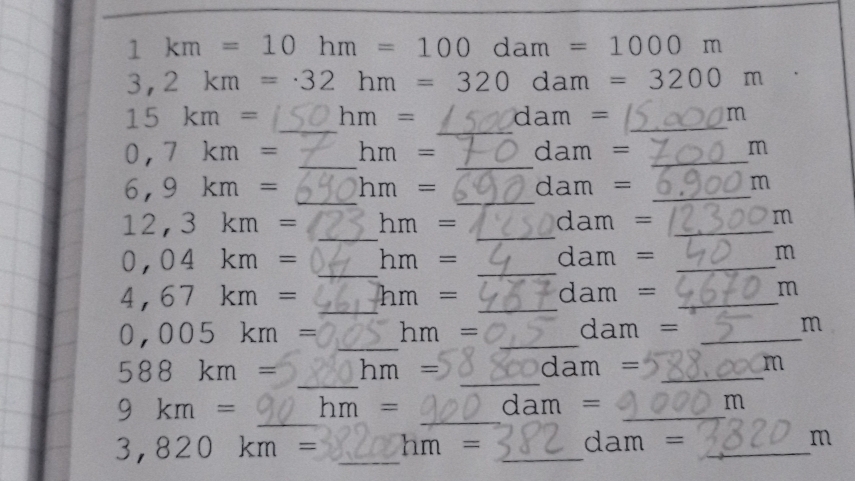 1 km = 10 hm = 100 dam = 1000 m
3,2 km = 32 hm = 320 dam = 3200 m
15 km = 150 hm = 1500 dam = 15.000 m
0,7 km = 7 hm = 70 dam = 700 m
6,9 km = 690 hm = 690 dam = 6.900 m
12,3 km = 123 hm = dam = 12.300 m
0,04 km = hm = 4 dam = 40 m
4,67 km = 46,7 hm = 467 dam = 4,670 m
0,005 km = 0,05 hm = 0,5 dam = 5 m
588 km = 5880 hm = 58800 dam = 588.000 m
9 km = 90 hm = 900 dam = 9000 m
3,820 km = 38,200 hm = 382 dam = 3,820 m